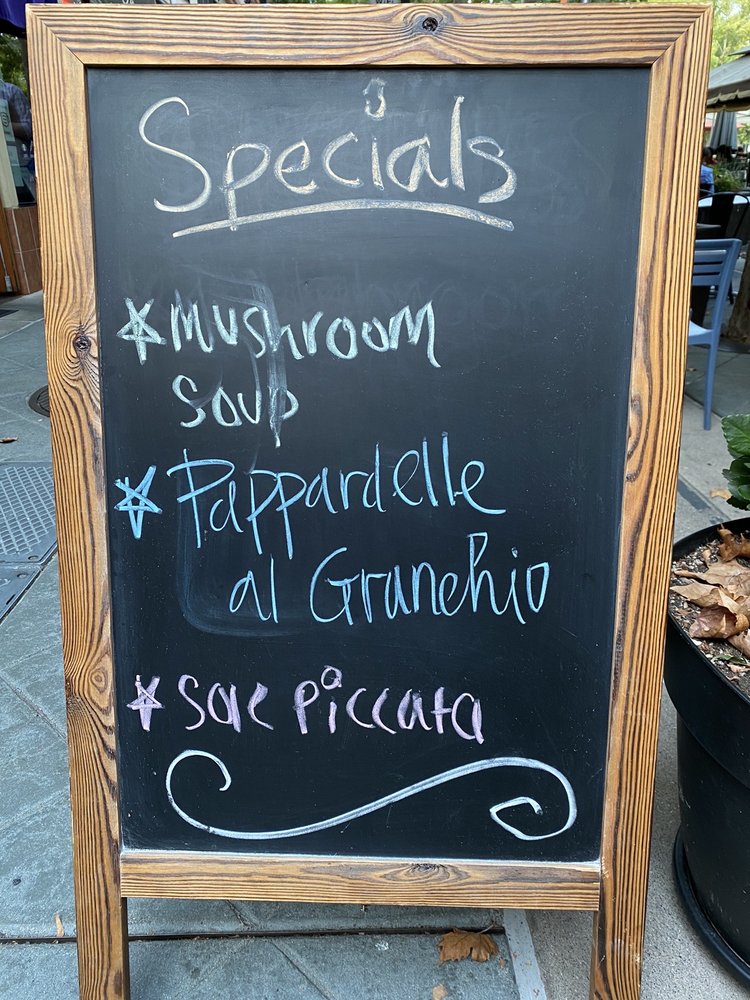 Specials
Mushroom
Soup
Pappardelle
al Granchio
Sole Piccata